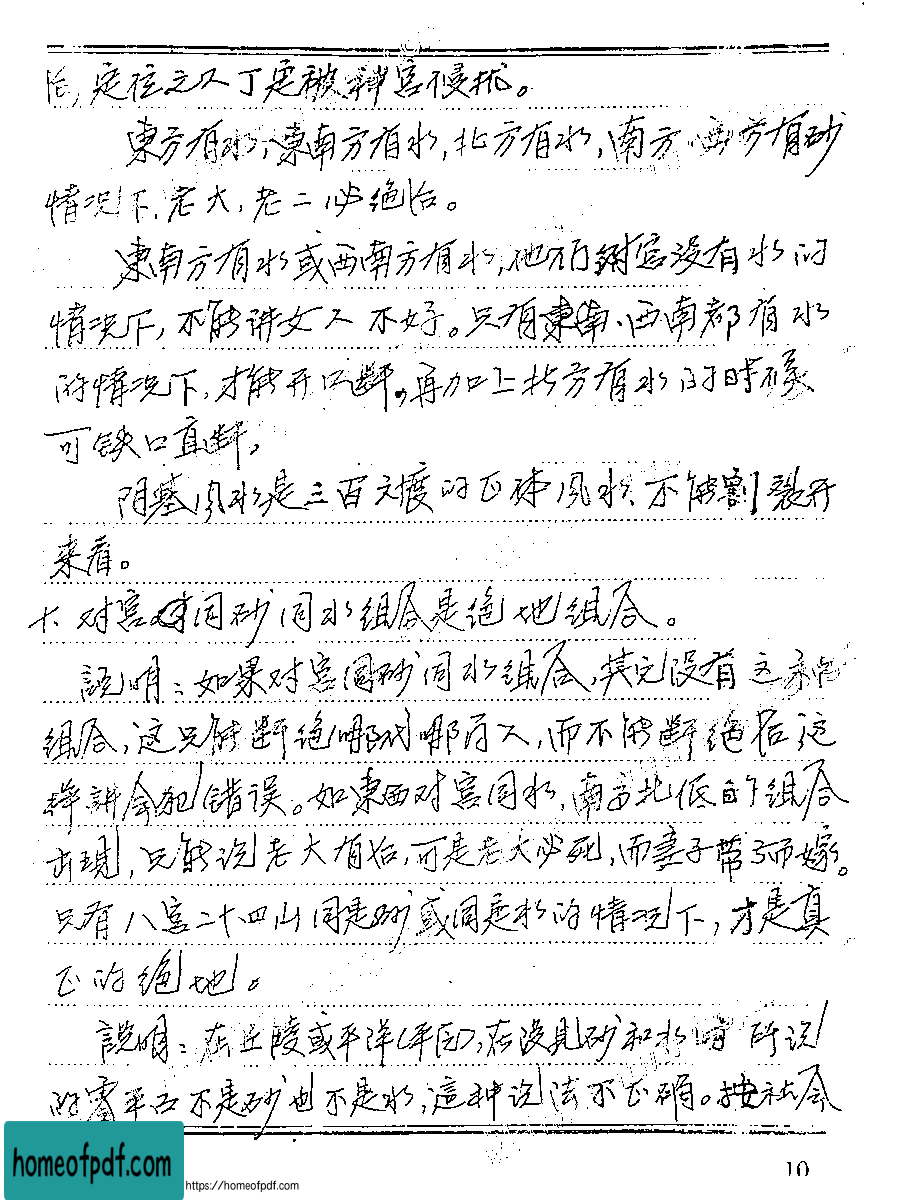 后,定位之人丁定被神宫侵扰。
東方有水,東南方有水,北方有水,南方、西方有砂
情况下,老大,老二必绝后。
東南方有水或西南方有水,他们对宫没有水的
情况下,不能讲女人不好。只有東南、西南都有水
的情况下,才能开口断。再加上北方有水的时候
可铁口直断。
阴基风水是三百六十度的正体风水、不能割裂开
来看。
十、对宫同砂同水组合是绝地组合。
說明:如果对宫同砂同水组合,其它没有这种
组合,这只能断绝哪代哪房人,而不能断绝后这
样讲会犯错误。如東西对宫同水,南高北低的组合
出現,只能说老大有后,可是老大必死,而妻子带子而嫁。
只有八宫二十四山同是砂或同是水的情况下,才是真
正的绝地。
說明:在丘陵或平洋(平原),在没見砂和水时 所说
的零平不是砂也不是水,這种说法不正确。按社会
10
homeofpdf.com
https://homeofpdf.com